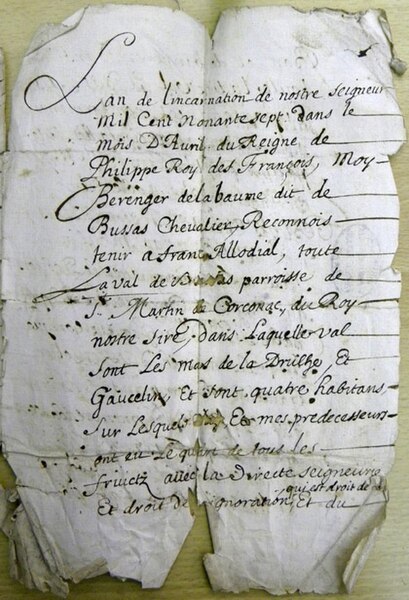 Lan de lincarnation de nostre seigneur
Mil Cent Nonante sept dans le
mois D'Auril du Reigne de
Philippe Roy des François, Moy
Berenger de la baume dit de
Bussas Chevalier, Reconnois
tenir a franc Allodial, toute
La val de Bussas parroisse de
St Martin de Corconac, du Roy
nostre sire, dans Laquelle val
sont Les mas de la Druilhe, Et
Gaucelin, Et sont quatre habitans
sur Lesquels Et mes predecesseurs
ont eu Le quart de tous les
fruictz avec la Directe seigneurie
qui est droit de
Et droit de Et du